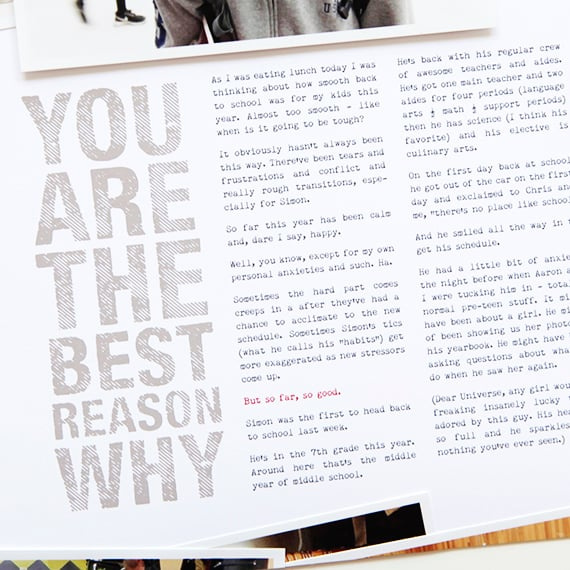 YOU
ARE
THE
BEST
REASON
WHY
As I was eating lunch today I was
thinking about how smooth back
to school was for my kids this
year. Almost too smooth - like
when is it going to be tough?
It obviously hasn't always been
this way. There've been tears and
frustrations and conflict and
really rough transitions, espe-
cially for Simon.
So far this year has been calm
and, dare I say, happy.
Well, you know, except for my own
personal anxieties and such. Ha.
Sometimes the hard part comes
creeps in a after they've had a
chance to acclimate to the new
schedule. Sometimes Simon's tics
(what he calls his "habits") get
more exaggerated as new stressors
come up.
But so far, so good.
Simon was the first to head back
to school last week.
He's in the 7th grade this year.
Around here that's the middle
year of middle school.
He's back with his regular crew
of awesome teachers and aides.
He's got one main teacher and two
aides for four periods (language
arts & math & support periods)
then he has science (I think his
favorite) and his elective is
culinary arts.
On the first day back at school
he got out of the car on the first
day and exclaimed to Chris and
me, "there's no place like school
And he smiled all the way in
get his schedule.
He had a little bit of
the night before when Aaron
I were tucking him in -
normal pre-teen stuff. It
have been about a girl. He
of been showing us her
his yearbook. He might have
asking questions about
do when he saw her again.
(Dear Universe, any girl
freaking insanely lucky
adored by this guy. His
so full and he sparkles
nothing you've ever seen.)